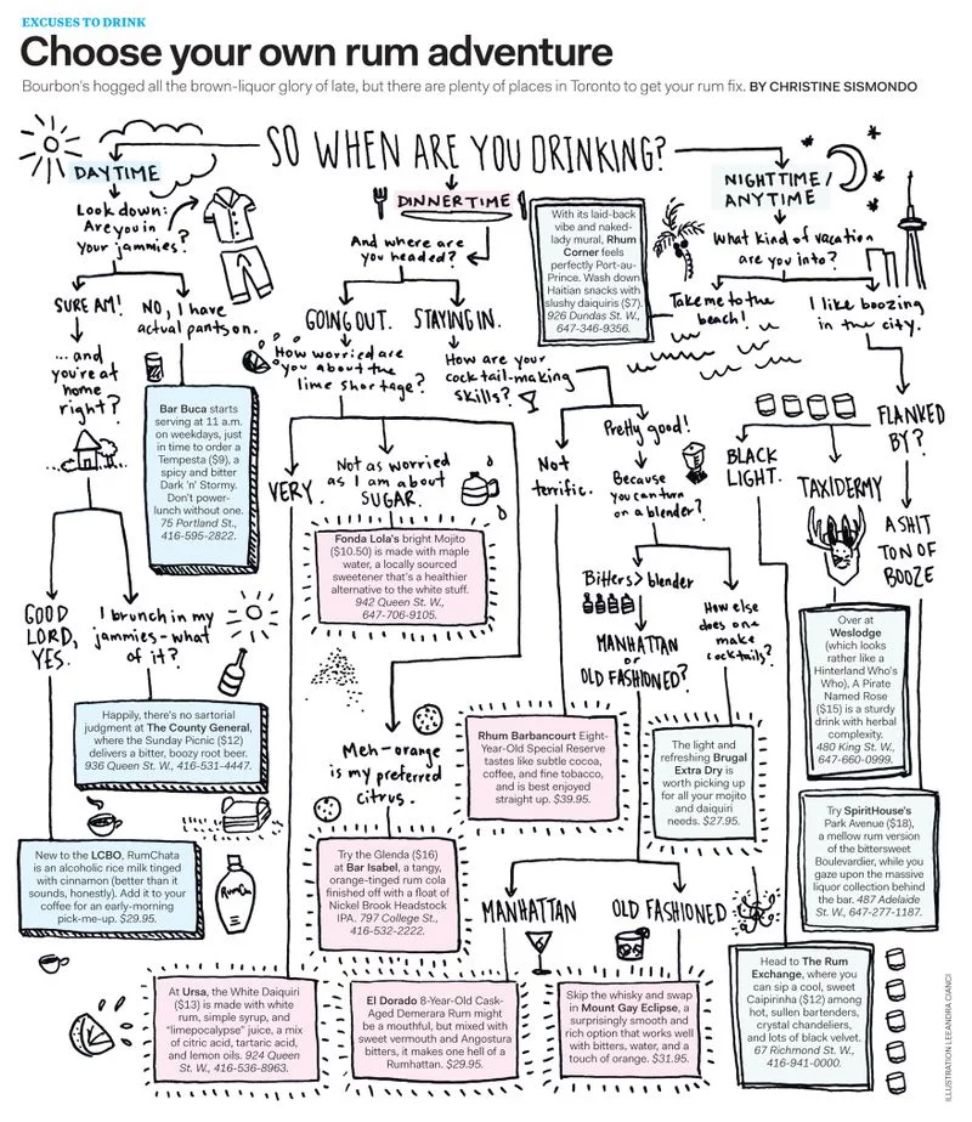 EXCUSES TO DRINK
Choose your own rum adventure
Bourbon's hogged all the brown-liquor glory of late, but there are plenty of places in Toronto to get your rum fix. BY CHRISTINE SISMONDO
SO WHEN ARE YOU DRINKING?
DAYTIME
Look down:
Are you in
your jammies?
SURE AM!
... and
you're at
home
right?
GOOD
LORD,
YES.
New to the LCBO, RumChata
is an alcoholic rice milk tinged
with cinnamon (better than it
sounds, honestly). Add it to your
coffee for an early-morning
pick-me-up. $29.95.
I brunch in my
jammies - what
of it?
Happily, there's no sartorial
judgment at The County General,
where the Sunday Picnic ($12)
delivers a bitter, boozy root beer.
936 Queen St. W., 416-531-4447.
RumCha
NO, I have
actual pants on.
Bar Buca starts
serving at 11 a.m.
on weekdays, just
in time to order a
Tempesta ($9), a
spicy and bitter
Dark 'n' Stormy.
Don't power-
lunch without one.
75 Portland St.,
416-595-2822.
DINNERTIME
And where are
you headed?
GOING OUT.
How worried are
you about the
lime shortage?
VERY.
At Ursa, the White Daiquiri
($13) is made with white
rum, simple syrup, and
"limepocalypse" juice, a mix
of citric acid, tartaric acid,
and lemon oils. 924 Queen
St. W., 416-536-8963.
Not as worried
as I am about
SUGAR.
Fonda Lola's bright Mojito
($10.50) is made with maple
water, a locally sourced
sweetener that's a healthier
alternative to the white stuff.
942 Queen St. W.,
647-706-9105.
Meh - orange
is my preferred
citrus.
Try the Glenda ($16)
at Bar Isabel, a tangy,
orange-tinged rum cola
finished off with a float of
Nickel Brook Headstock
IPA. 797 College St.,
416-532-2222.
STAYING IN.
How are your
cocktail-making
skills?
Not
terrific.
Rhum Barbancourt Eight-
Year-Old Special Reserve
tastes like subtle cocoa,
coffee, and fine tobacco,
and is best enjoyed
straight up. $39.95.
Pretty good!
Because
you can turn
on a blender?
Bitters > blender
MANHATTAN
or
OLD FASHIONED?
MANHATTAN
El Dorado 8-Year-Old Cask-
Aged Demerara Rum might
be a mouthful, but mixed with
sweet vermouth and Angostura
bitters, it makes one hell of a
Rumhattan. $29.95.
OLD FASHIONED
Skip the whisky and swap
in Mount Gay Eclipse, a
surprisingly smooth and
rich option that works well
with bitters, water, and a
touch of orange. $31.95.
How else
does one
make
cocktails?
The light and
refreshing Brugal
Extra Dry is
worth picking up
for all your mojito
and daiquiri
needs. $27.95.
NIGHTTIME/
ANYTIME
What kind of vacation
are you into?
Take me to the
beach!
With its laid-back
vibe and naked-
lady mural, Rhum
Corner feels
perfectly Port-au-
Prince. Wash down
Haitian snacks with
slushy daiquiris ($7).
926 Dundas St. W.,
647-346-9356.
I like boozing
in the city.
FLANKED
BY?
BLACK
LIGHT.
Head to The Rum
Exchange, where you
can sip a cool, sweet
Caipirinha ($12) among
hot, sullen bartenders,
crystal chandeliers,
and lots of black velvet.
67 Richmond St. W.,
416-941-0000.
TAXIDERMY
Over at
Weslodge
(which looks
rather like a
Hinterland Who's
Who), A Pirate
Named Rose
($15) is a sturdy
drink with herbal
complexity.
480 King St. W.,
647-660-0999.
A SHIT
TON OF
BOOZE
Try SpiritHouse's
Park Avenue ($18),
a mellow rum version
of the bittersweet
Boulevardier, while you
gaze upon the massive
liquor collection behind
the bar. 487 Adelaide
St. W., 647-277-1187.
ILLUSTRATION LEEANDRA CIANCI